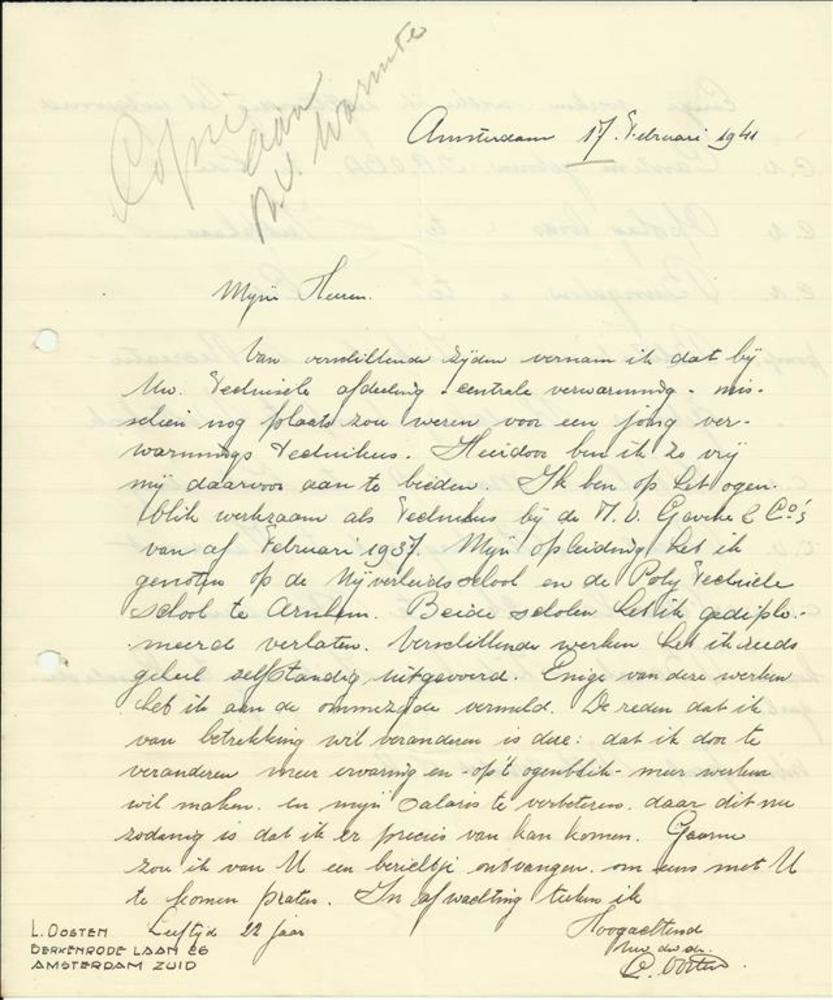 Copie
aan
N.V. Warmte
Amsterdam 17 Februari 1941
Mijne Heeren.
Van verschillende zijden vernam ik dat bij
Uw. Technische afdeeling - centrale verwarming - mis-
schien nog plaats zou wezen voor een jong ver-
warmings Technikus. Hierdoor ben ik zo vrij
mij daarvoor aan te bieden. Ik ben op het ogen-
blik werkzaam als Technikus bij de N.V. Geveke & Co's
van af Februari 1937. Mijn opleiding heb ik
genoten op de Nijverheidsschool en de Poly Technische
school te Arnhem. Beide scholen heb ik gediplo-
meerd verlaten. Verschillende werken heb ik reeds
geheel zelfstandig uitgevoerd. Enige van deze werken
heb ik aan de ommezijde vermeld. De reden dat ik
van betrekking wil veranderen is deze: dat ik door te
veranderen meer ervaring en - op't ogenblik - meer werken
wil maken. en mijn salaris te verbeteren. daar dit nu
zodanig is dat ik er precies van kan komen. Gaarne
zou ik van U een berichtje ontvangen. om eens met U
te komen praten. In afwachting teken ik
Leeftijd 22 jaar
Hoogachtend
Uw dw dr.
L. Oosten
L. OOSTEN
BERKENRODE LAAN 26
AMSTERDAM ZUID